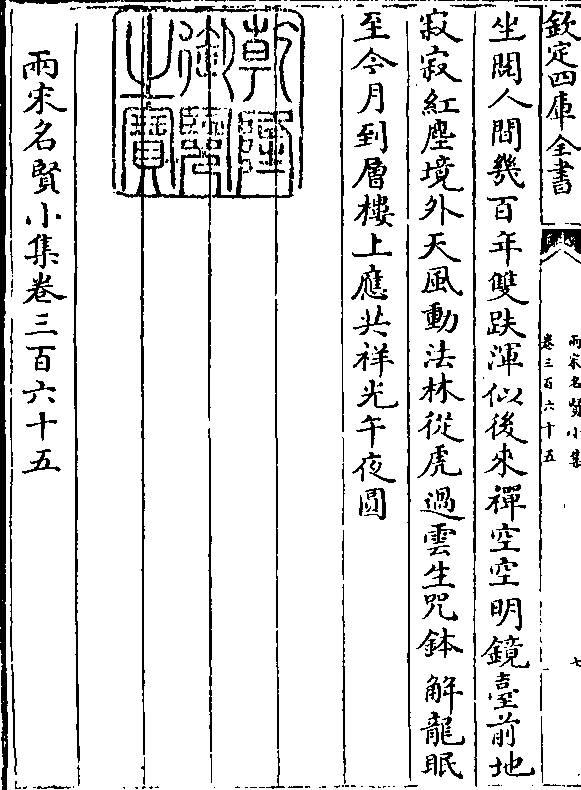 欽定四庫全書
兩宋名賢小集
卷三百六十五
七
坐閱人間幾百年雙趺渾似後來禪空空明鏡臺前地
寂寂紅塵境外天風動法林從虎過雲生咒鉢解龍眠
至今月到層樓上應共祥光午夜圓
乾隆御覽之寶
兩宋名賢小集卷三百六十五